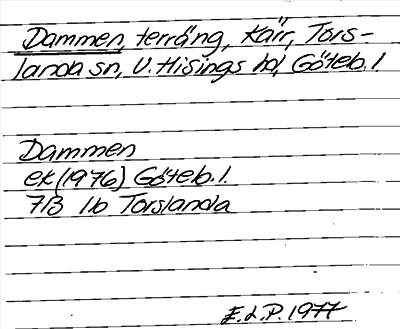 Dammen, terräng, Kärr, Tors-
landa sn, V. Hisings hd, Göteb. l.
Dammen
ek (1976) Göteb. l.
7B 1b Torslanda
E.L.P. 1977